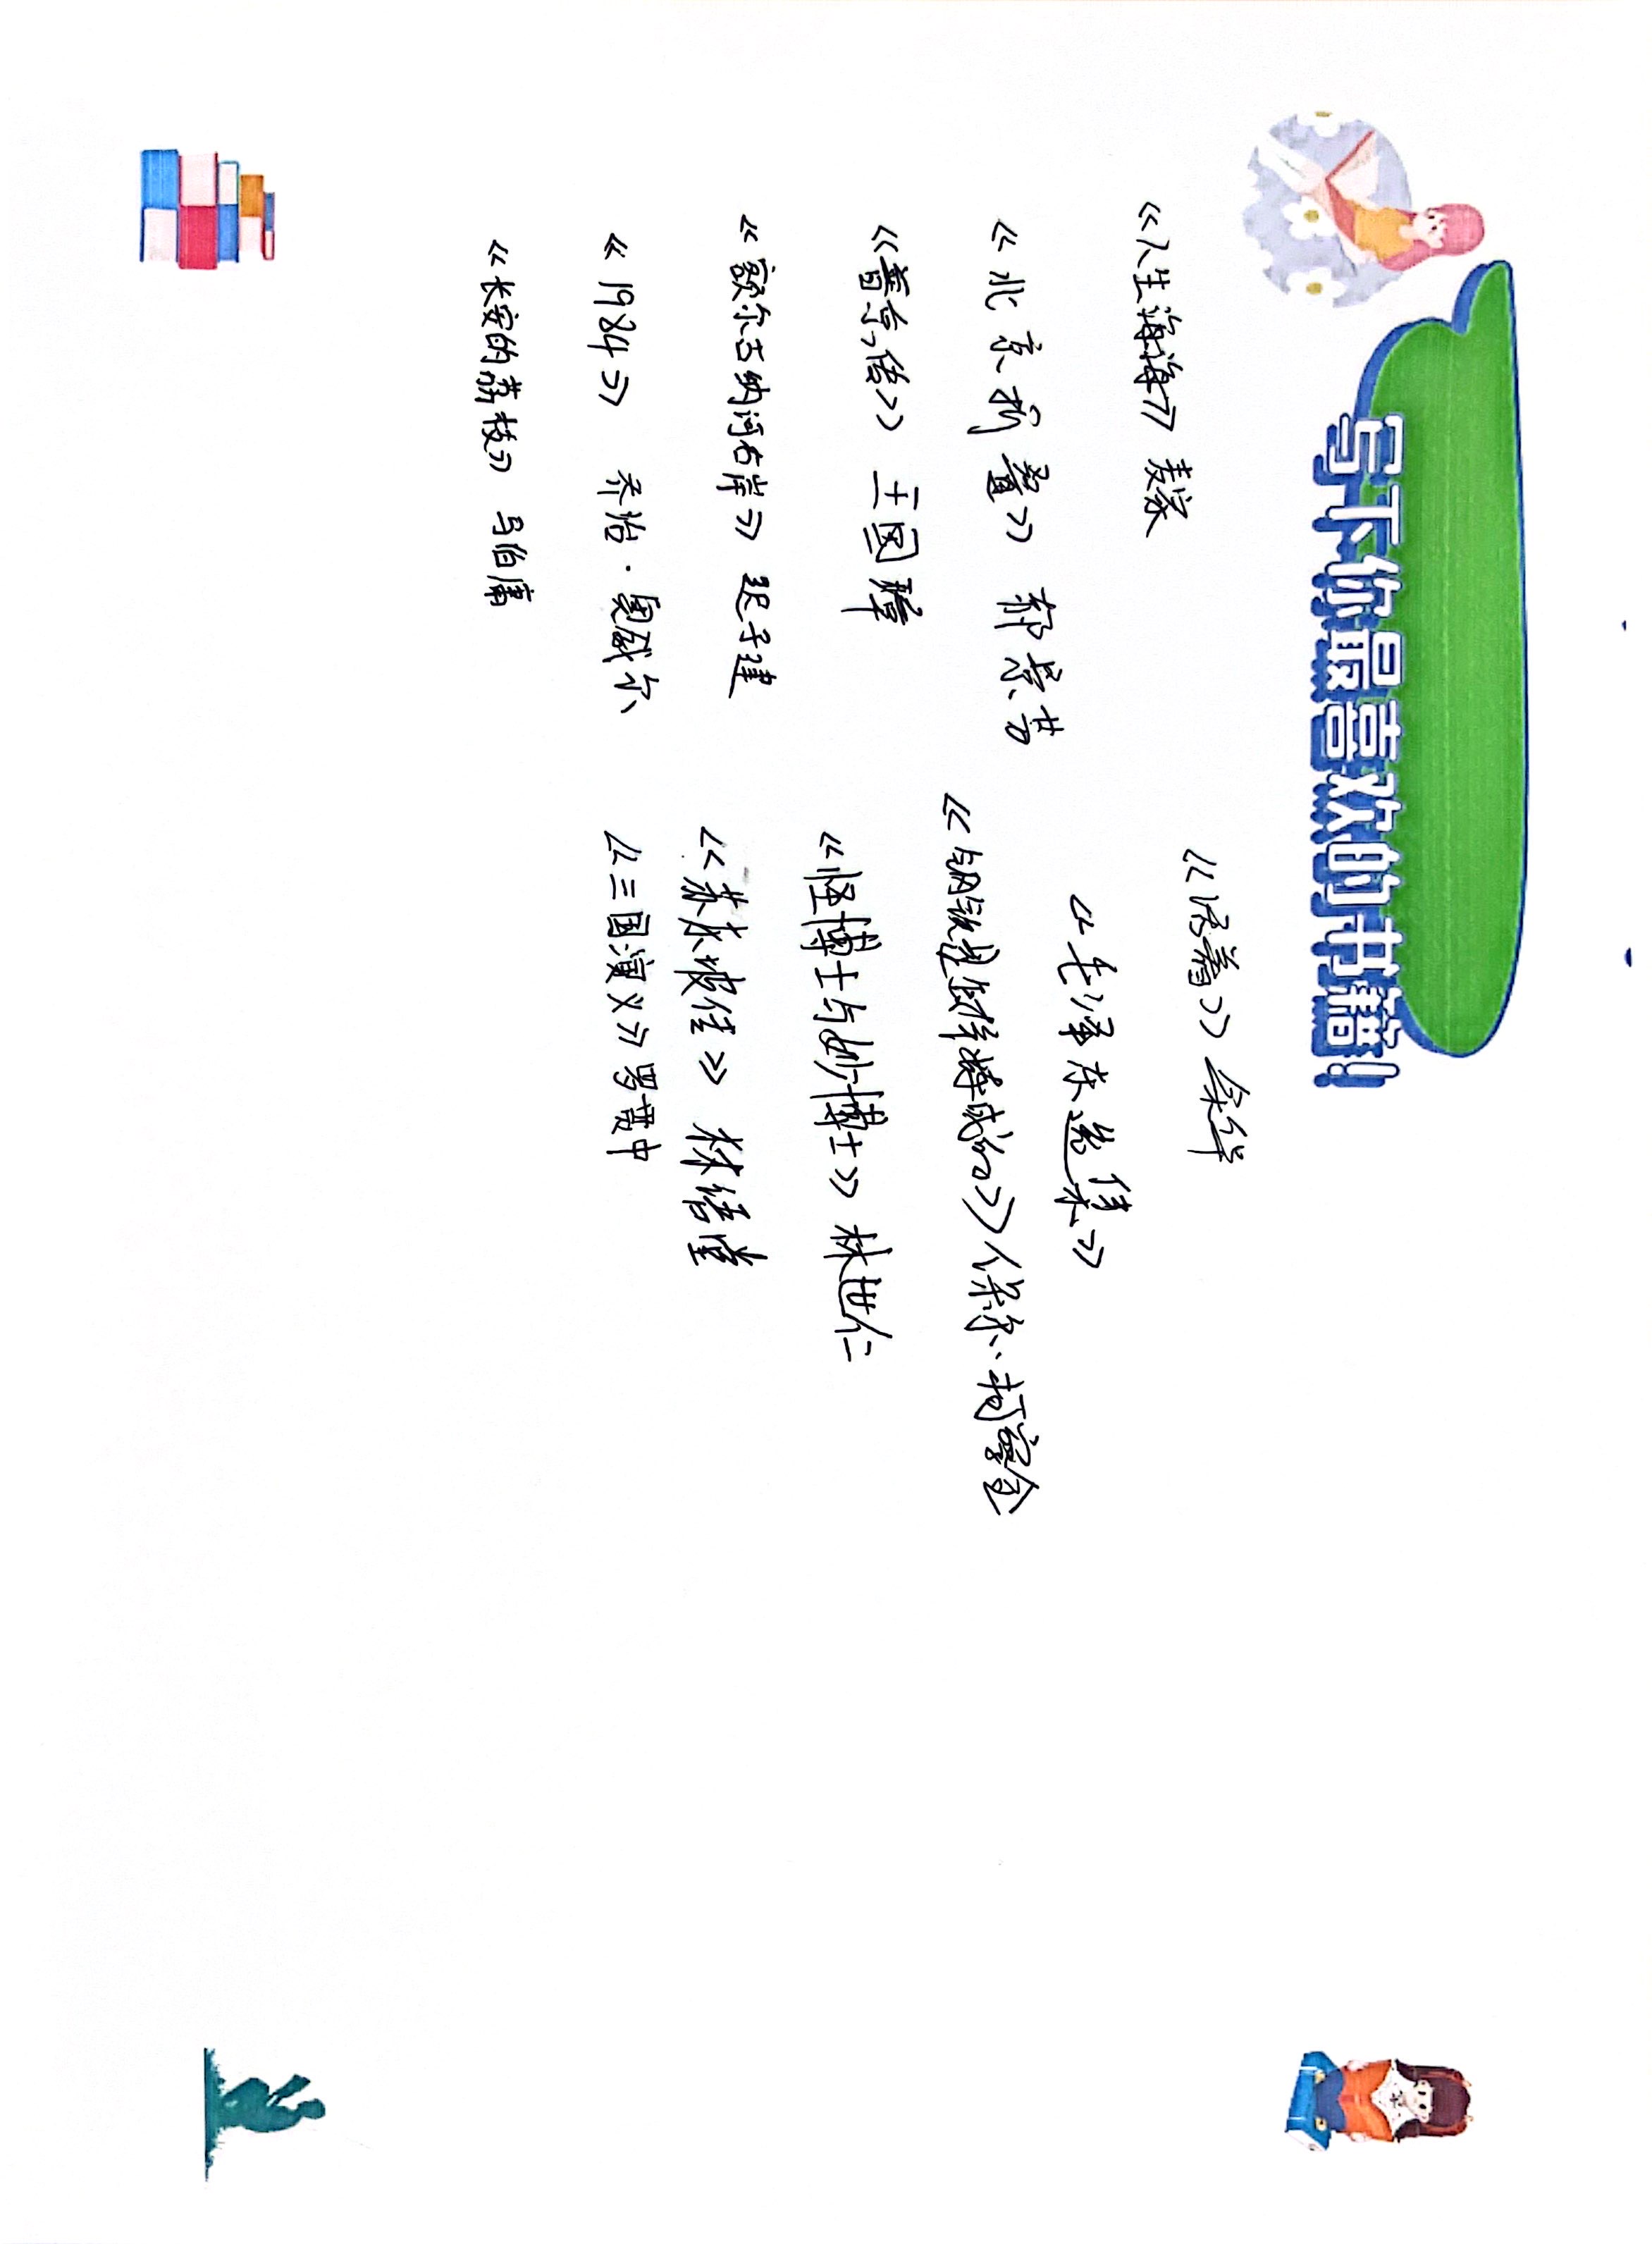 写下你最喜欢的书籍!
《人生海海》 麦家
《北京折叠》 郁景芳
《普京传》 王国璋
《额尔古纳河右岸》 迟子建
《1984》 乔治·奥威尔
《长安的荔枝》 马伯庸
《活着》 余华
《毛泽东选集》
《钢铁是怎样炼成的》 保尔·柯察金
《怪博士与妙博士》 林世仁
《苏东坡传》 林语堂
《三国演义》 罗贯中